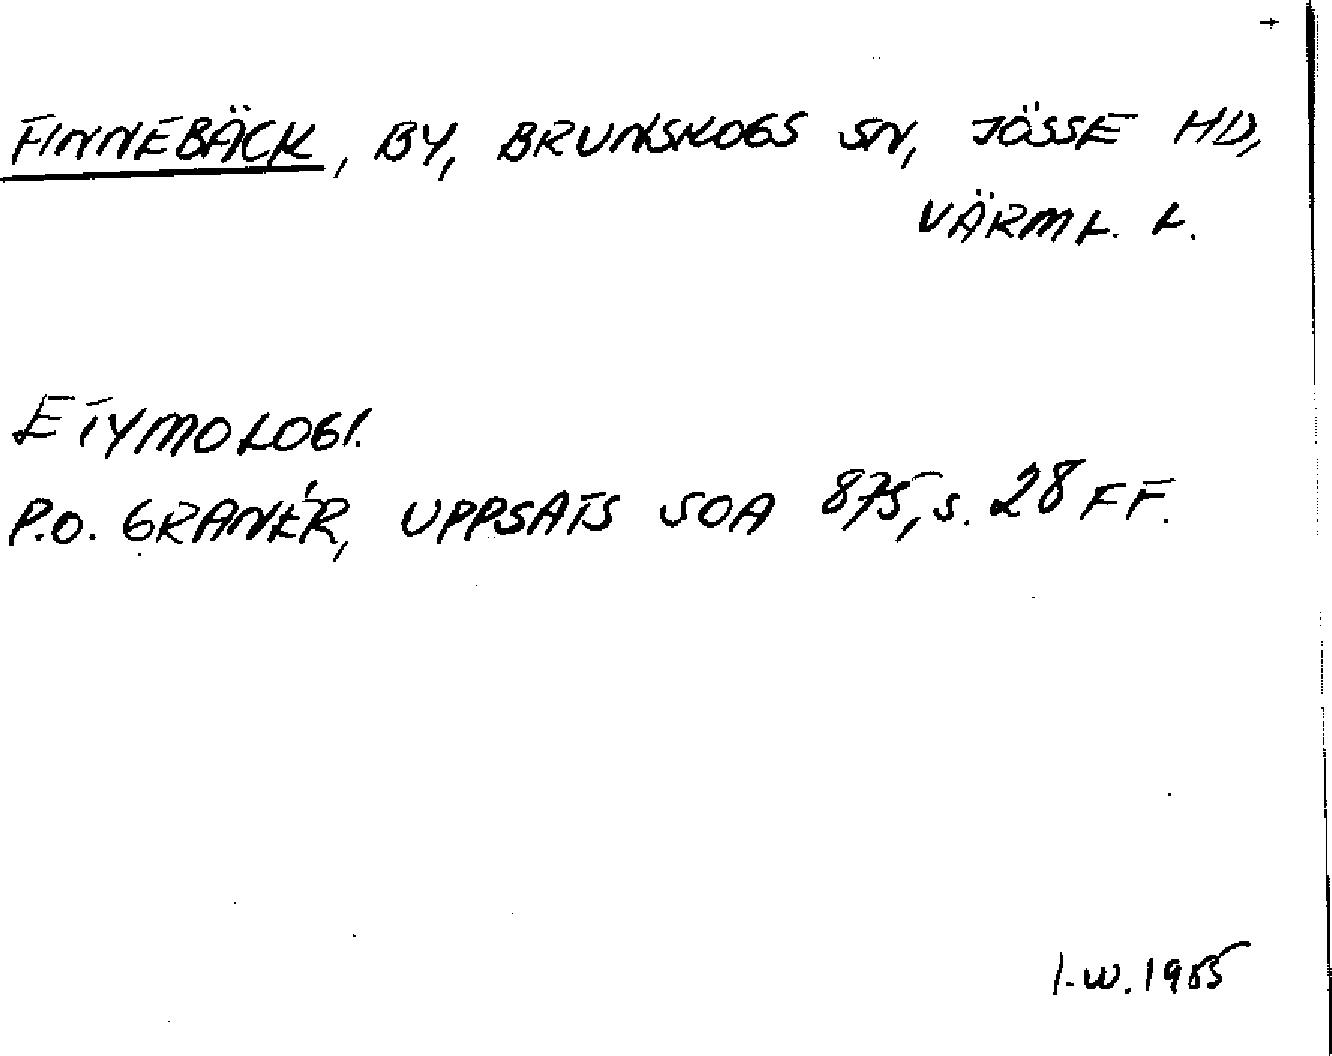 FINNEBÄCK, BY, BRUNSKOGS SN, JÖSSE HD,
VÄRML. L.
ETYMOLOGI.
P.O. GRANÉR, UPPSATS SOA 875, S. 28 FF.
I.W. 1955